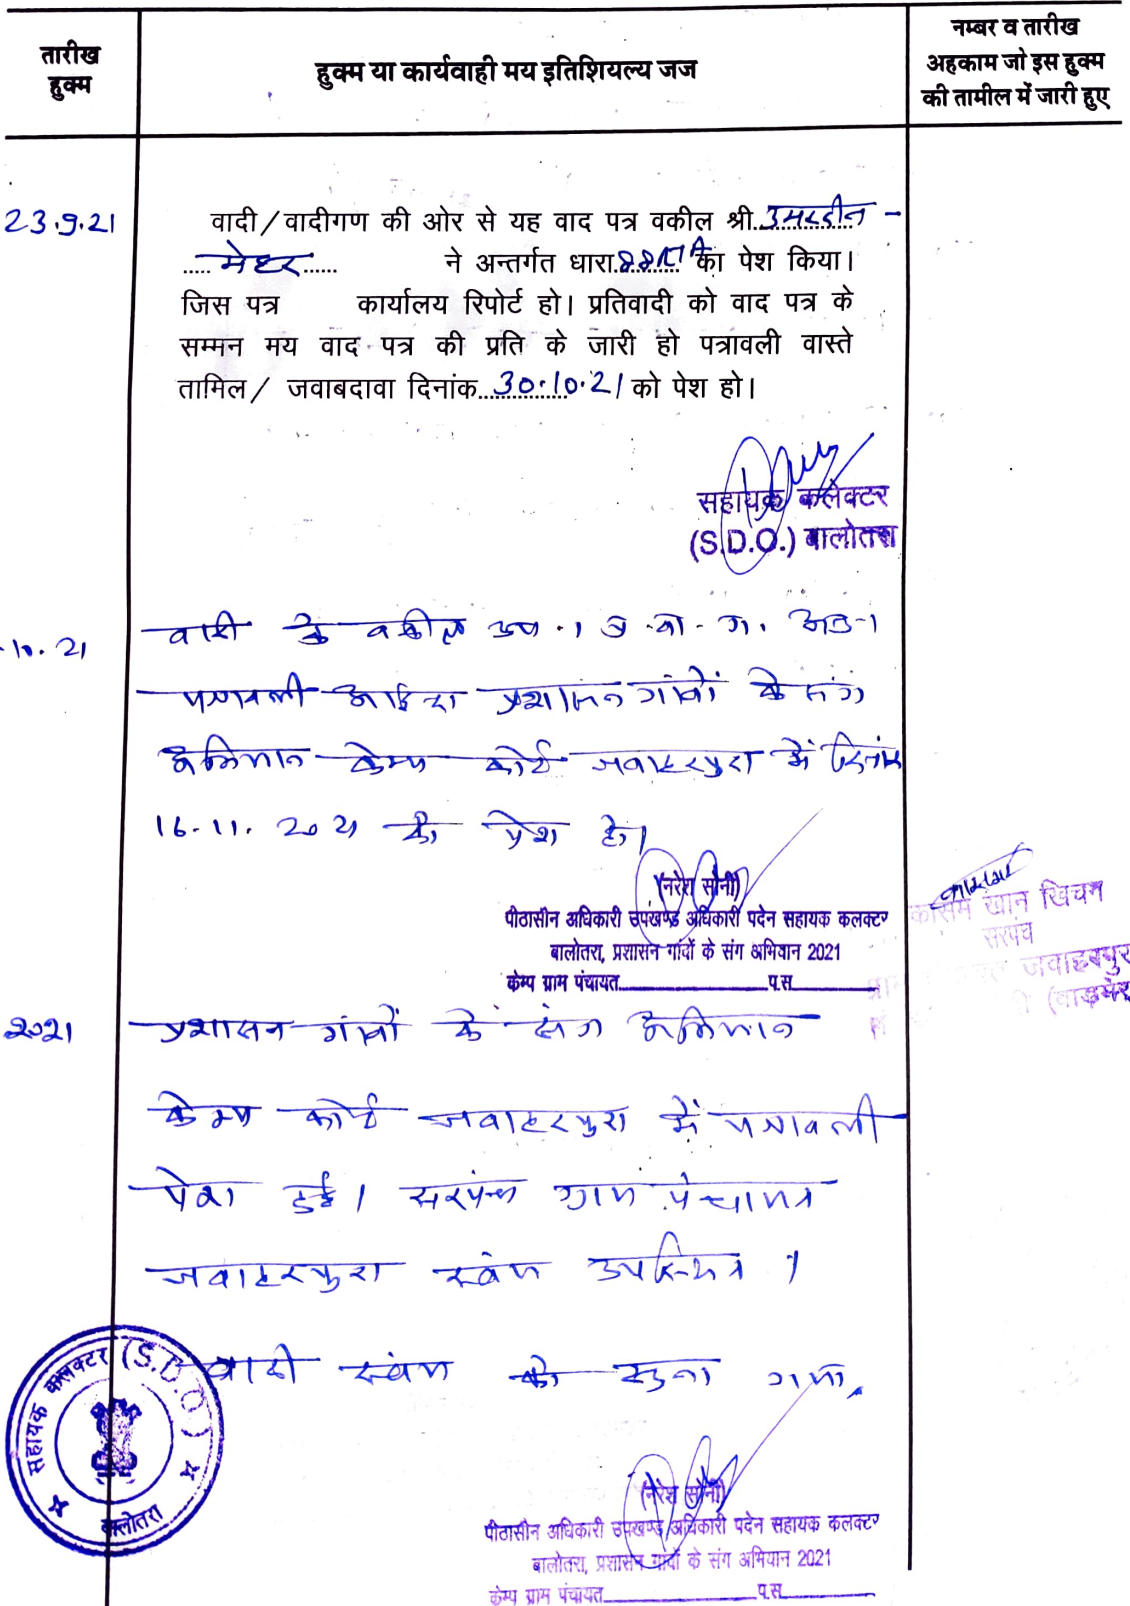 तारीख
हुक्म
हुक्म या कार्यवाही मय इतिशियल्य जज
नम्बर व तारीख
अहकाम जो इस हुक्म
की तामील में जारी हुए
23.9.21
वादी/वादीगण की ओर से यह वाद पत्र वकील श्री उमरदीन -
मेहर ने अन्तर्गत धारा 88 RTA का पेश किया।
जिस पत्र कार्यालय रिपोर्ट हो। प्रतिवादी को वाद पत्र के
सम्मन मय वाद पत्र की प्रति के जारी हो पत्रावली वास्ते
तामिल/ जवाबदावा दिनांक 30.10.21 को पेश हो।
सहायक कलेक्टर
(S.D.O.) बालोतरा
10.21
वादी के वकील उप.।
पत्रावली आईन्दा प्रशासन गांवों के संग
अभियान केम्प कोर्ट जवाहरपुरा में दिनांक
16.11.2021 को पेश हो।
(नरेश सोनी)
पीठासीन अधिकारी उपखण्ड अधिकारी पदेन सहायक कलक्टर
बालोतरा, प्रशासन गांवों के संग अभियान 2021
केम्प ग्राम पंचायत__________प.स.__________
कासम खान खिचन
सरपंच
जवाहरपुर
(बाड़मेर
2021
प्रशासन गांवों के संग अभियान
केम्प कोर्ट जवाहरपुरा में पत्रावली
पेश हुई। सरपंच ग्राम पंचायत
जवाहरपुरा स्वंय उपस्थित।
वादी स्वंय को सुना गया,
सहायक कलक्टर (S.D.O)
बालोतरा
(नरेश सोनी)
पीठासीन अधिकारी उपखण्ड अधिकारी पदेन सहायक कलक्टर
बालोतरा, प्रशासन गांवों के संग अभियान 2021
केम्प ग्राम पंचायत__________प.स.__________